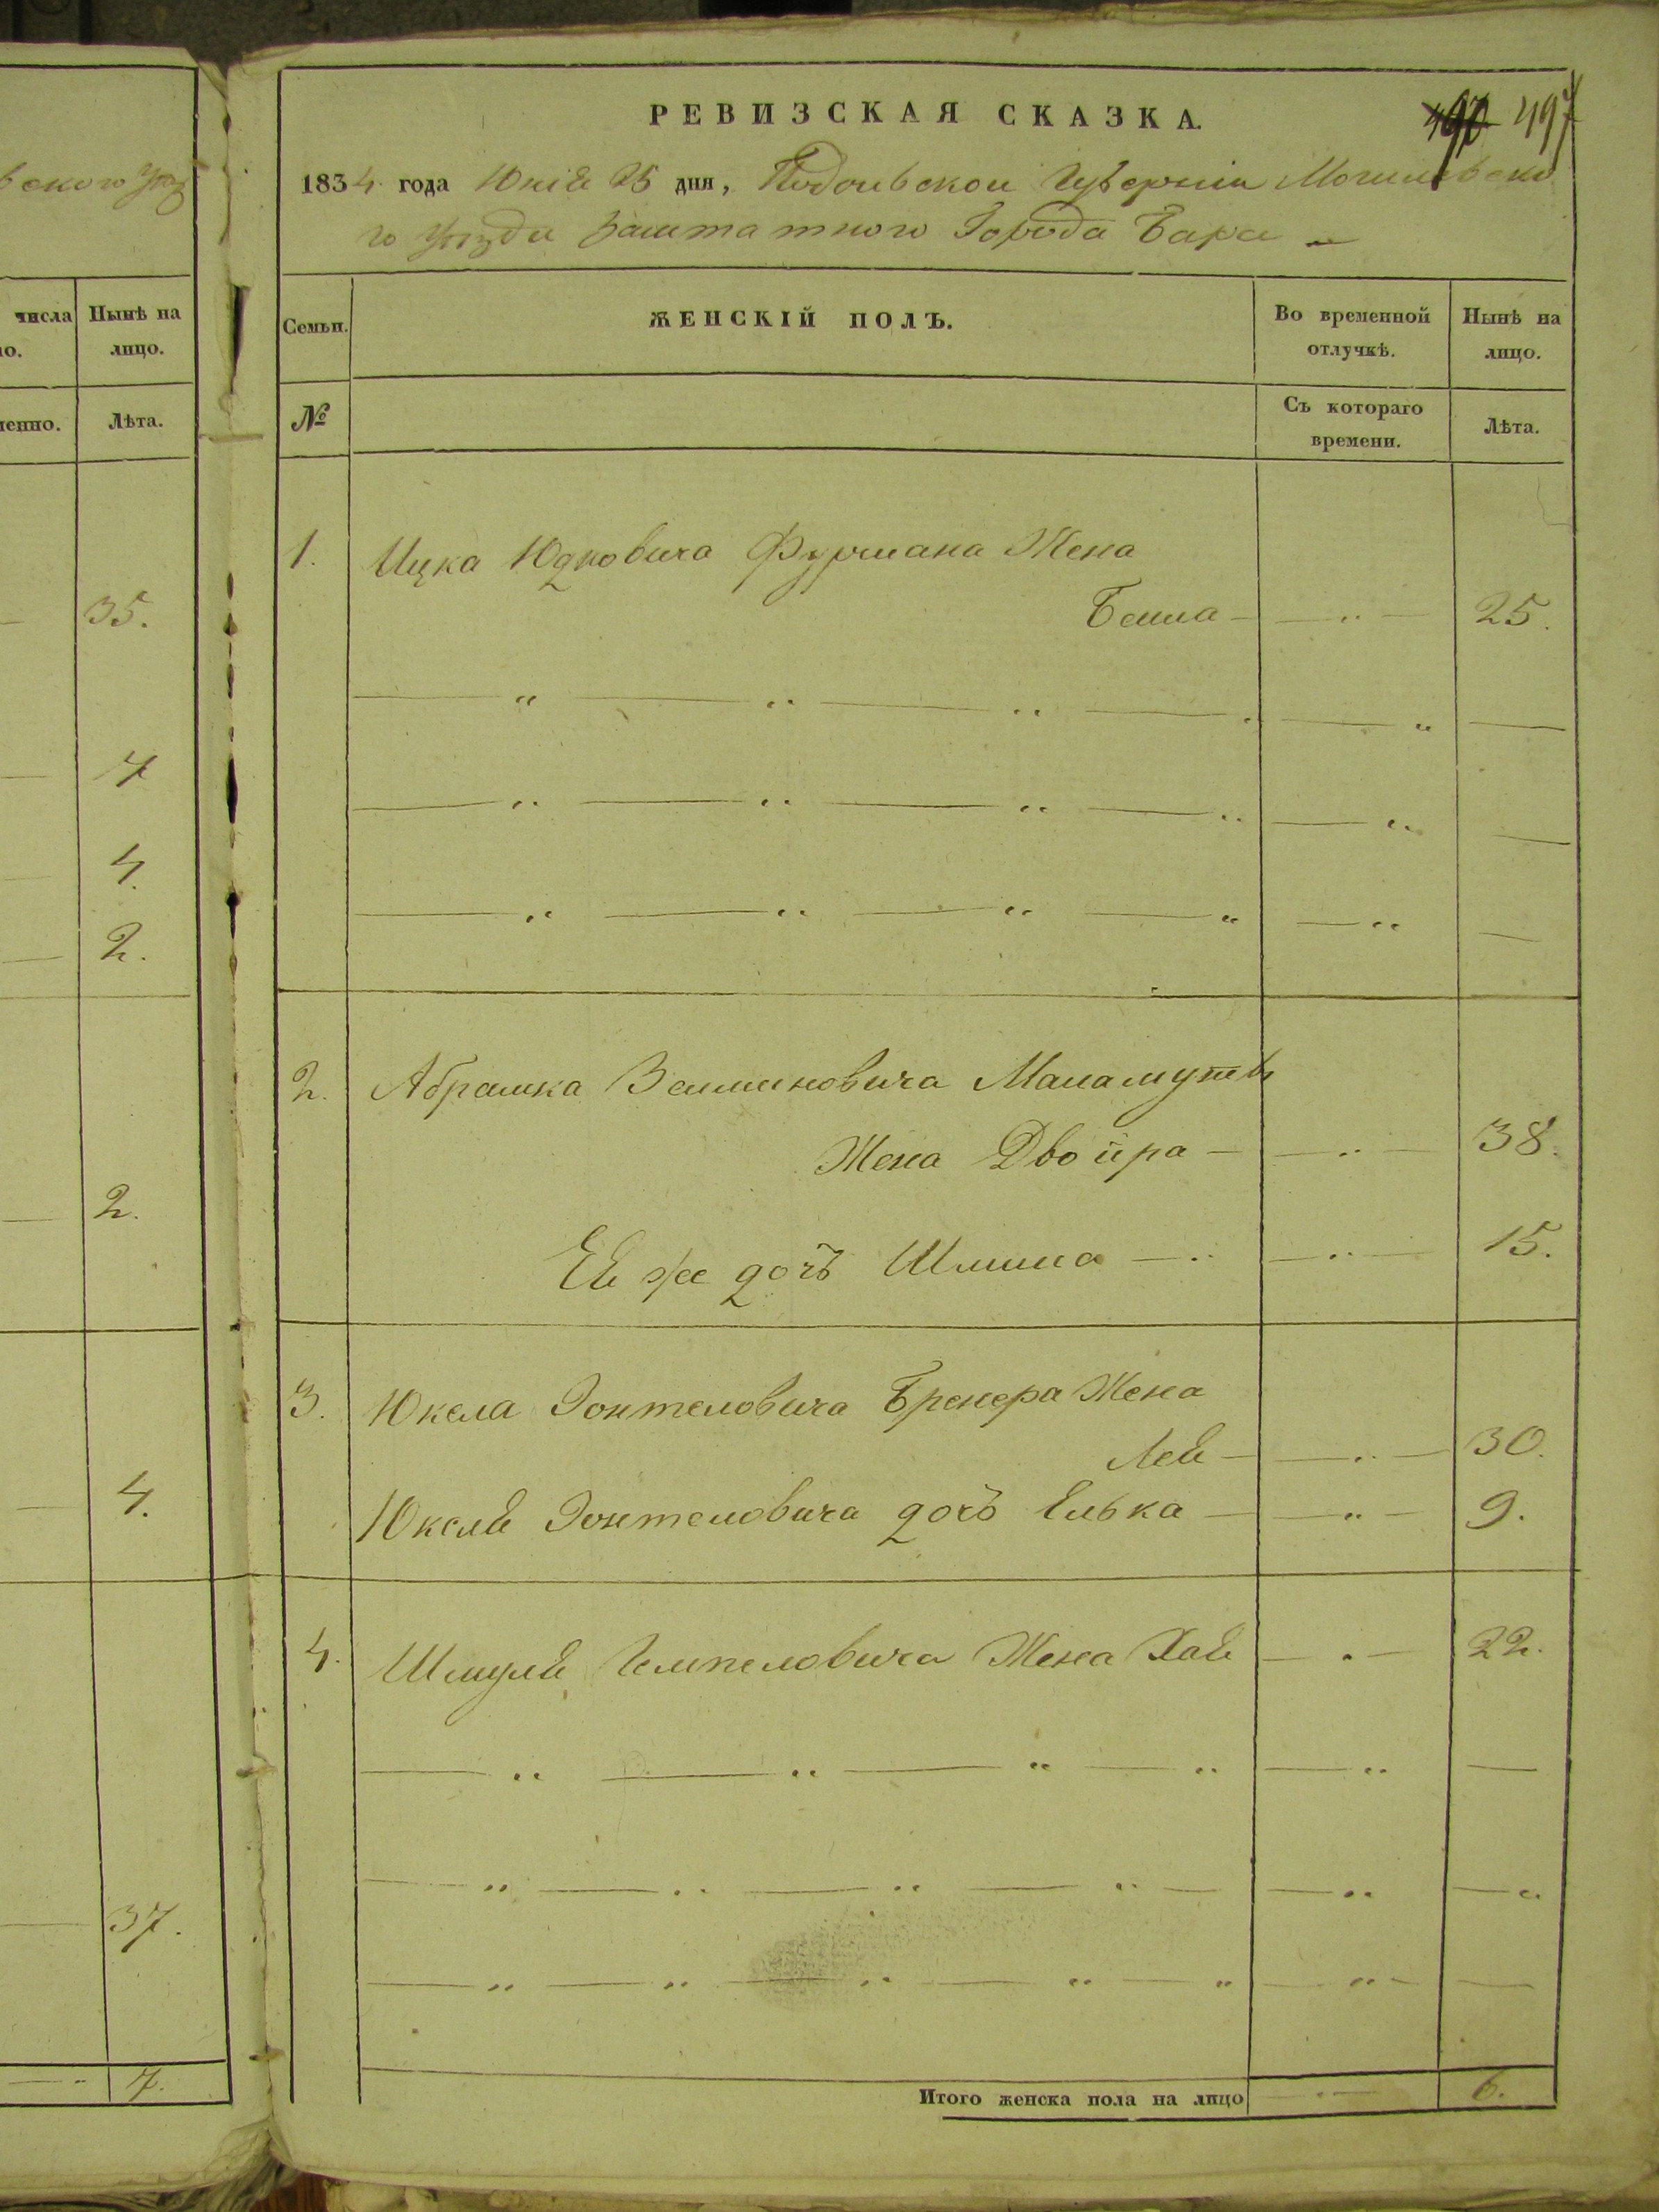 вского Уѣз
числа Нынѣ на
но. лицо.
менно. Лѣта.
35.
7
4.
2.
2.
4.
37.
7.
РЕВИЗСКАЯ СКАЗКА.
497
1834 года Юнія 25 дня, Подольской Губерніи Могилевско
го Уѣзда Заштатного Города Бара
Семьи. ЖЕНСКІЙ ПОЛЪ. Во временной Нынѣ на
отлучкѣ. лицо.
№ Съ котораго Лѣта.
времени.
1. Ицка Юдковича Фурмана Жена
Бейла 25.
2. Абрамка Залмановича Маламутъ
Жена Двойра 38.
Ея же дочь 15.
3. Юкела Зонтеловича Бренера Жена
Лея 30.
Юкеля Зонтеловича дочь Елька 9.
4. Шмуля Жена Хая 22.
Итого женска пола на лицо 6.